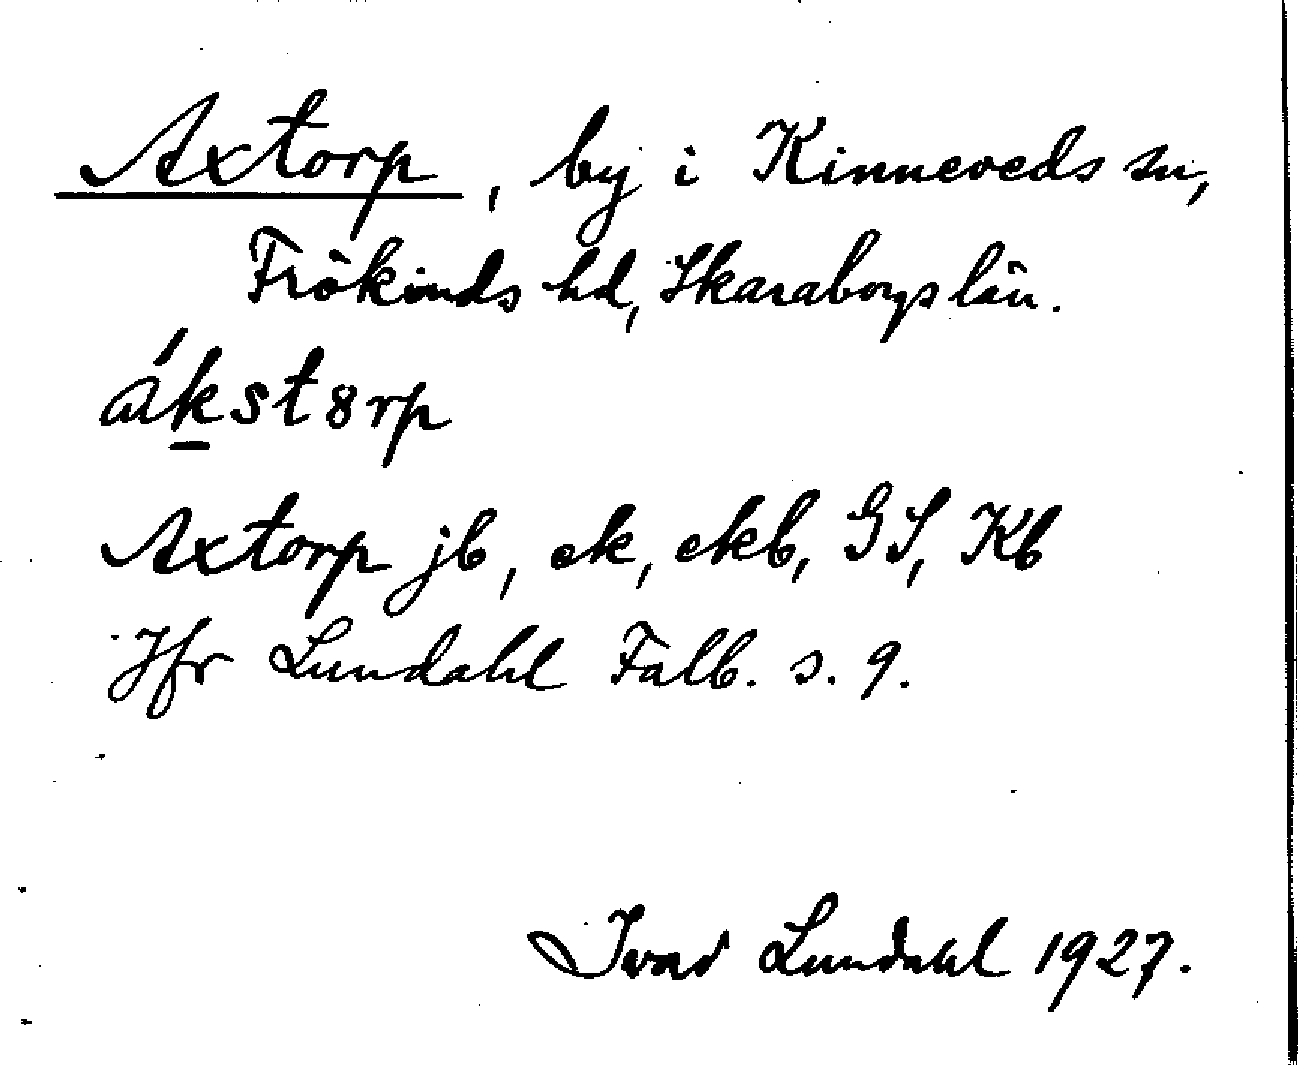 Axtorp, by i Kinneveds sn,
Frökinds hd, Skaraborgs län.
ákst8rp
Axtorp jb, ek, ekb, GS, Kb
Jfr Lundahl Falb. s. 9.
Ivar Lundahl 1927.